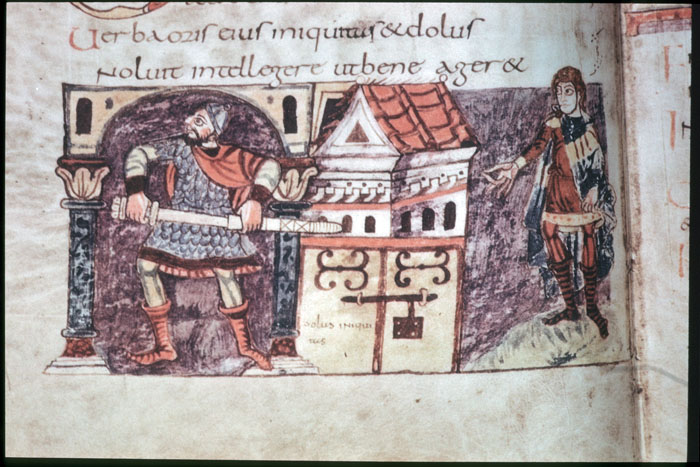 Verba oris eius iniquitas & dolus
Noluit intellegere ut bene ager&
dolus iniqui
tas